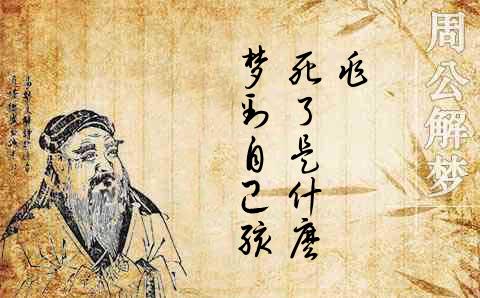 周公解梦
梦到自己孩
死了是什麼
兆